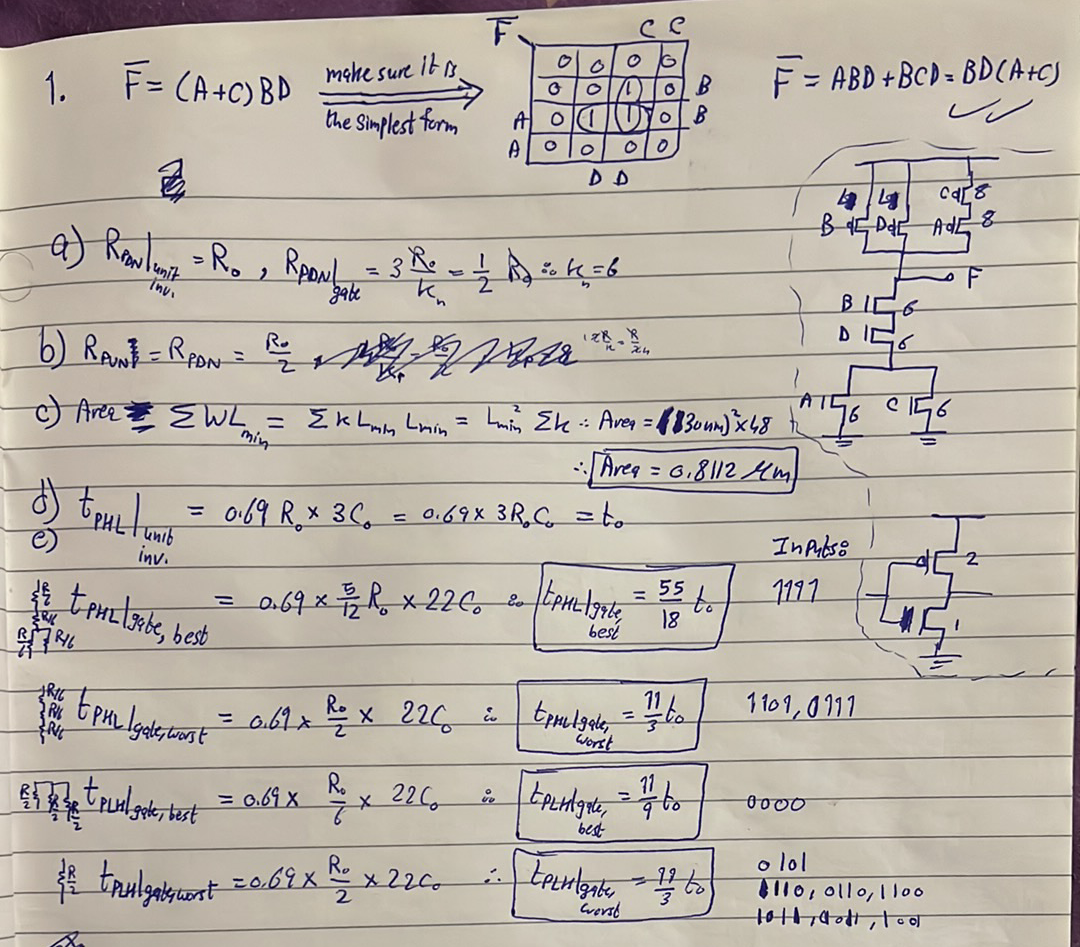 F̅
C C
1. F̅ = (A+C)BD make sure it is the simplest form
0 0 0 0
0 0 1 0 B
A 0 1 1 0 B
A 0 0 0 0
D D
F̅ = ABD + BCD = BD(A+C)
4 4 C 8
B D A 8
F
B 6
D 6
A 6 C 6
a) R_PDN|unit inv. = R₀ , R_PDN|gate = 3 R₀/kₙ = 1/2 R₀ ∴ kₙ = 6
b) R_PUN = R_PDN = R₀/2
c) Area = ΣWLmin = Σk Lmin Lmin = L²min Σk ∴ Area = (130nm)² × 48
∴ Area = 0.8112 μm
d) t_PHL|unit inv. = 0.69 R₀ × 3C₀ = 0.69 × 3R₀C₀ = t₀
e)
Inputs:
2
1
R/2 R/6 R/6 R/6 t_PHL|gate, best = 0.69 × 5/12 R₀ × 22C₀ ∴ t_PHL|gate, best = 55/18 t₀ 1111
R/6 R/6 R/6 t_PHL|gate, worst = 0.69 × R₀/2 × 22C₀ ∴ t_PHL|gate, worst = 11/3 t₀ 1101, 0111
R/2 R/2 R/2 t_PLH|gate, best = 0.69 × R₀/6 × 22C₀ ∴ t_PLH|gate, best = 11/9 t₀ 0000
R/2 t_PLH|gate, worst = 0.69 × R₀/2 × 22C₀ ∴ t_PLH|gate, worst = 11/3 t₀ 0101
1110, 0110, 1100
1011, 0011, 1001